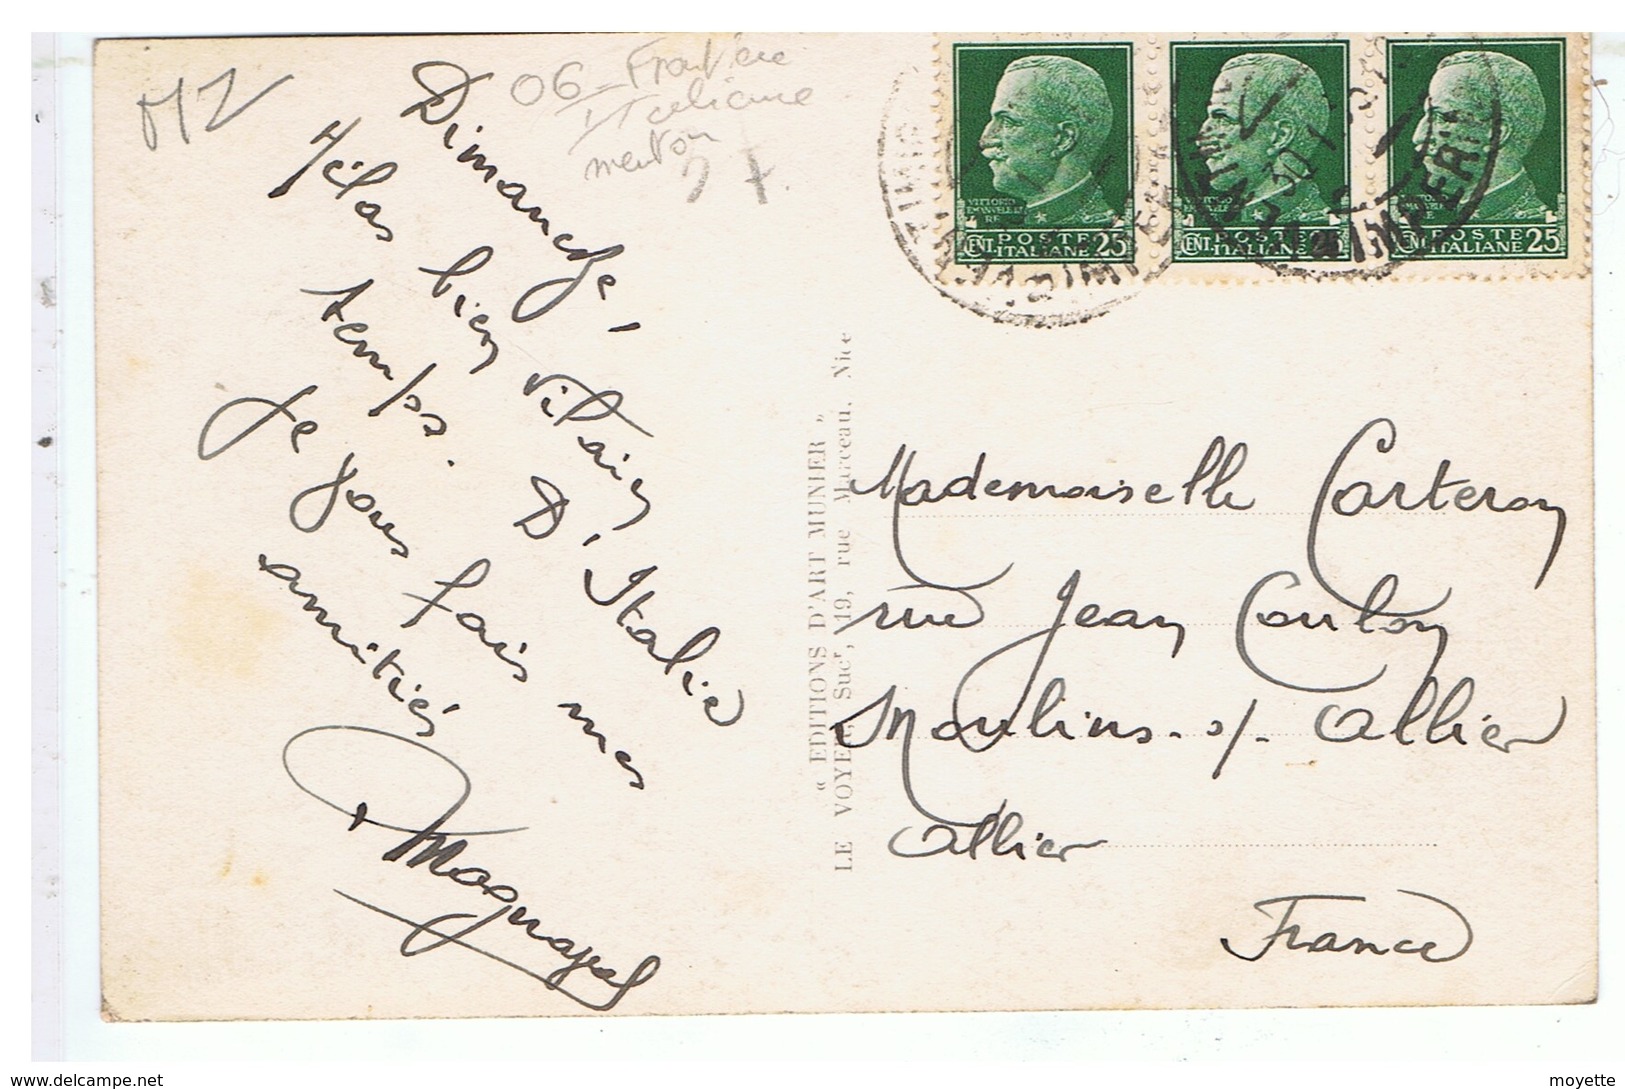 MZ
06 - Frontière
Italienne
menton
Dimanche,
Hélas bien vilain
temps. D'Italie
je vous fais mes
amitiés
« EDITIONS D'ART MUNIER »
LE VOYER, Sucr, 19, rue Marceau, Nice
VITTORIO
EMANUELE III
RE
CENT. POSTE ITALIANE 25
CENT. POSTE ITALIANE 25
POSTE ITALIANE 25
VENTIMIGLIA
IMPERIA
30
Mademoiselle Carteron
rue Jean Coulon
Moulins-s/- Allier
Allier
France
delcampe.net
moyette